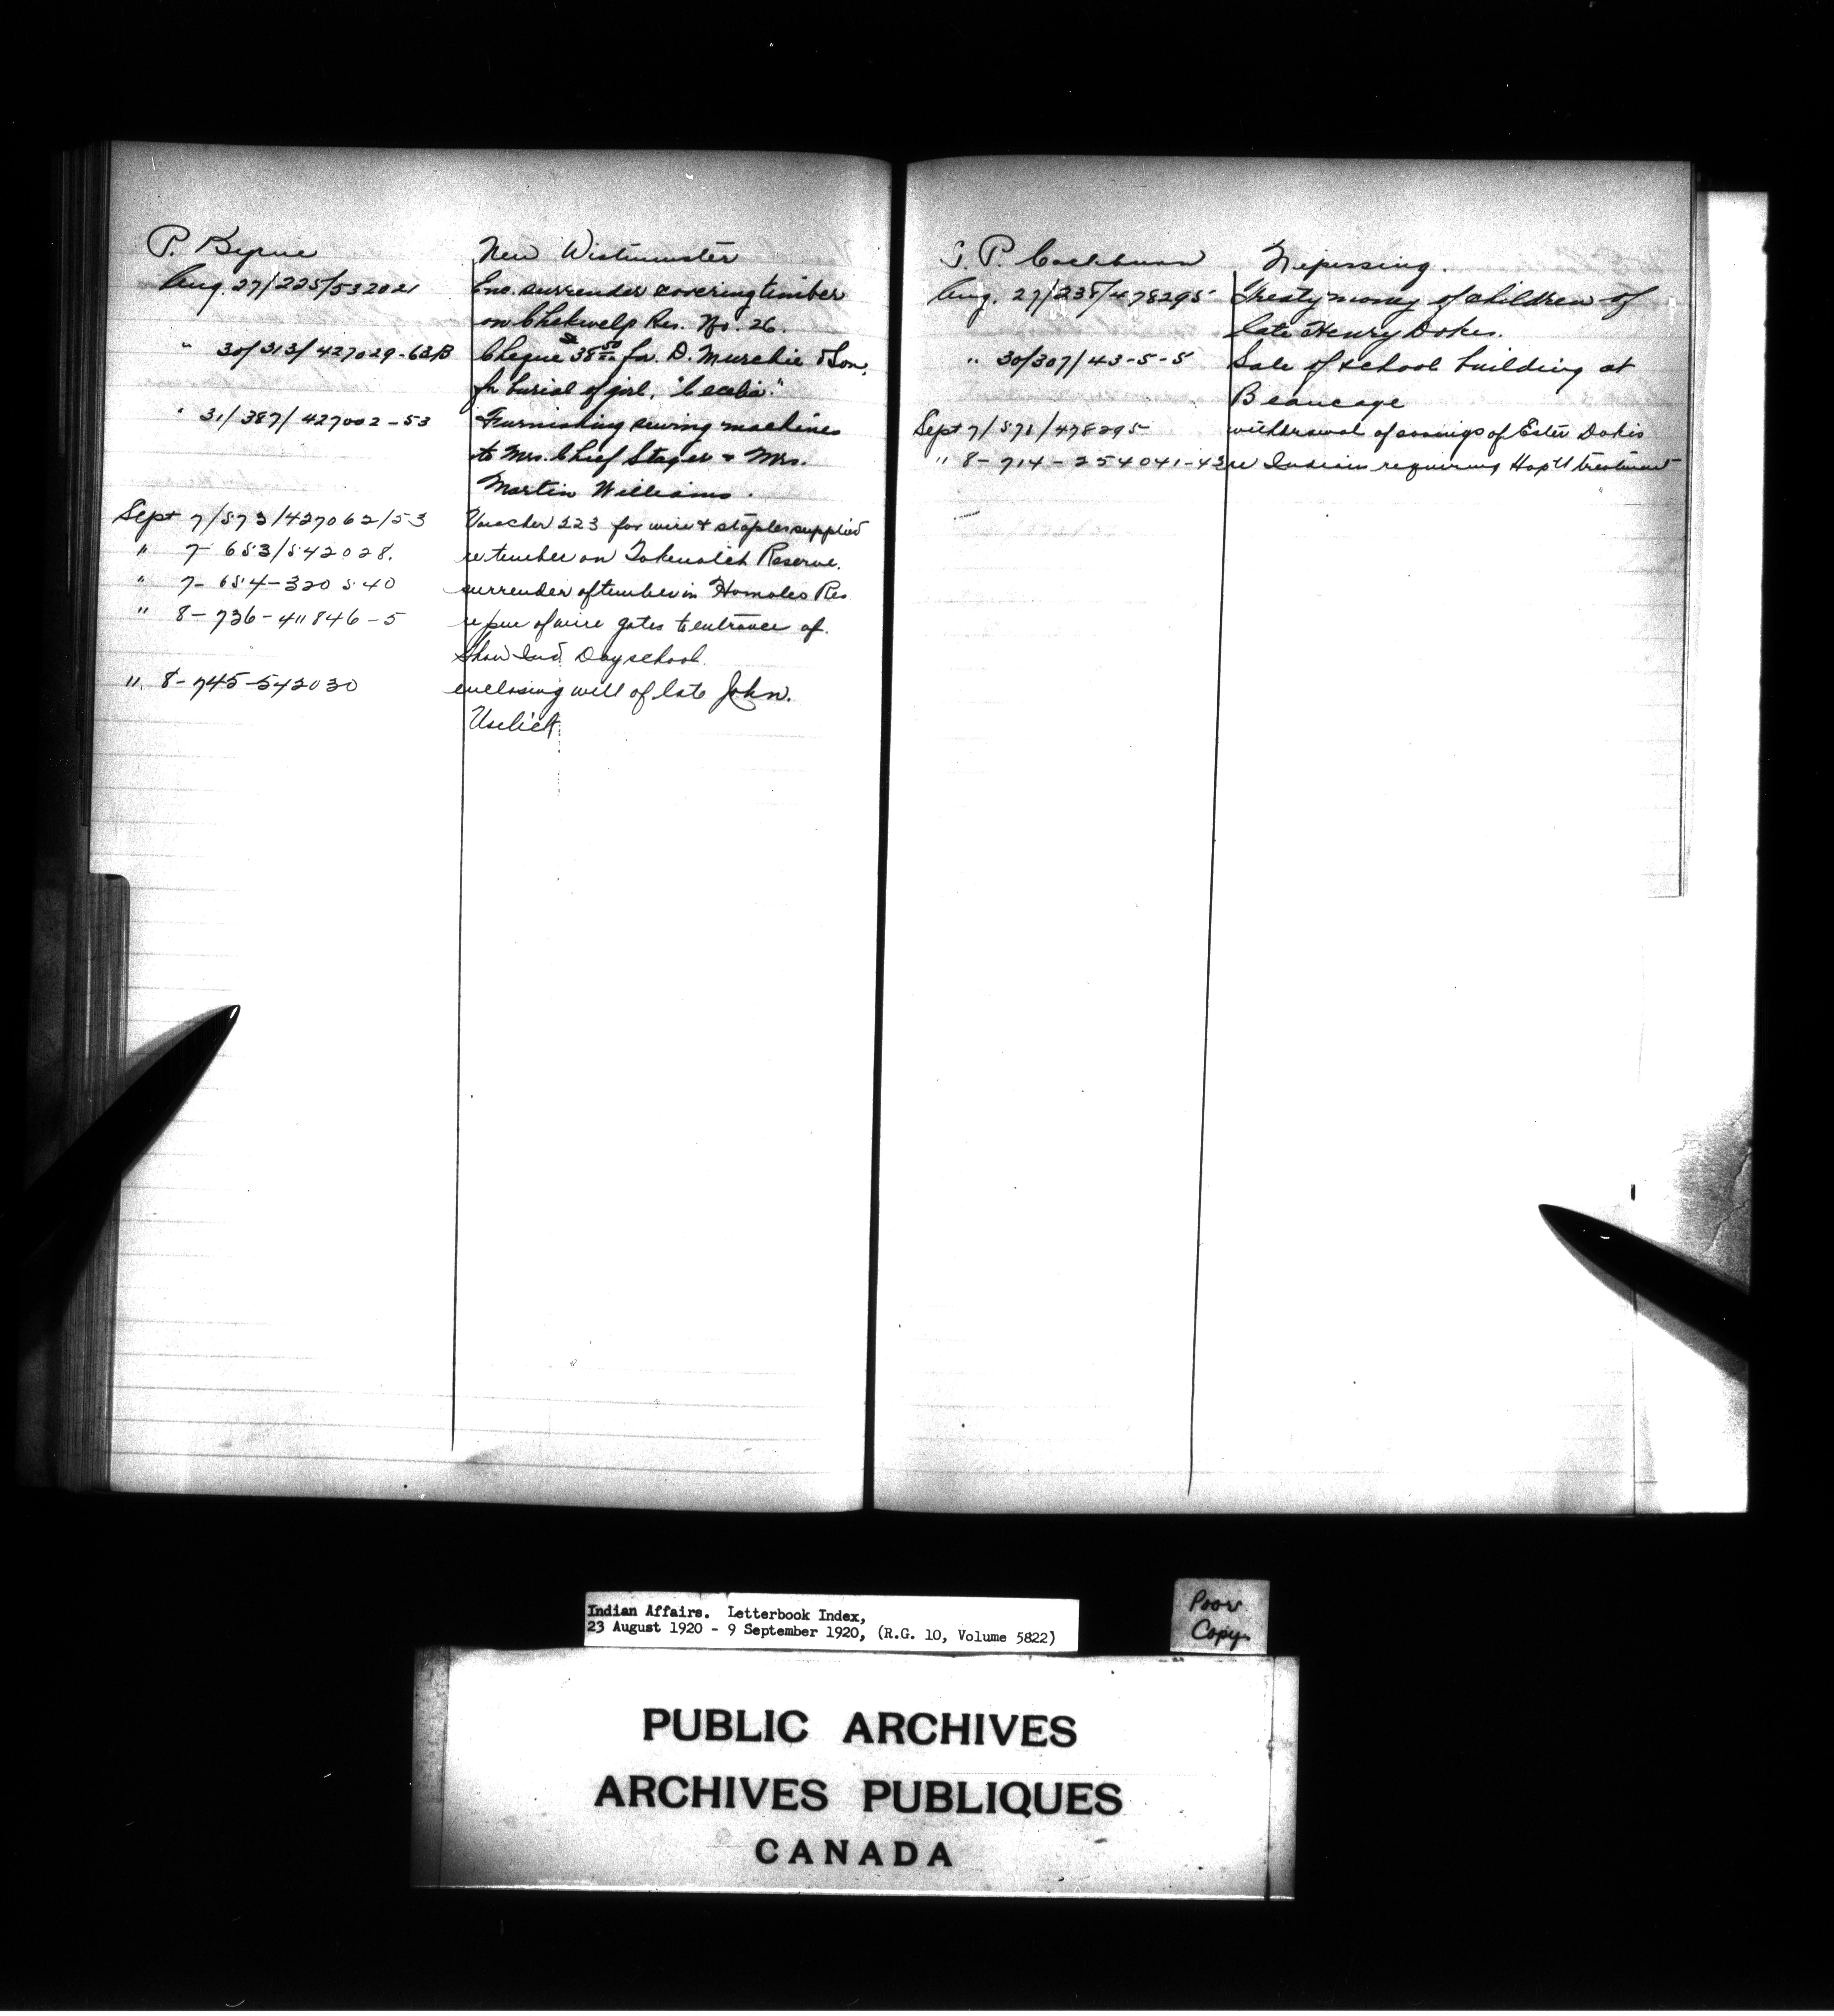 P. Byrne New Westminster
Aug. 27/225/532021 Enc. surrender covering timber
on Chekwelp Res. No. 26.
" 30/313/427029-63B Cheque $38 50/00 fa. D. Murchie & Son,
for burial of girl, "Cecelia".
" 31/387/427002-53 Furnishing sewing machines
to Mrs. Chief Stager & Mrs.
Martin Williams.
Sept 7/573/427062/53 Voucher 223 for wire & staples supplied
" 7- 653/542028. re timber on Reserve.
" 7- 654-320540 surrender of timber in Homalco Res
" 8-736-411846-5 re pur of wire gates to entrance of
Ind. Day school.
" 8-745-542030 enclosing will of late John.
J. P. Cockburn Nipissing.
Aug. 27/235/478295 Treaty money of children of
late Henry Dokes.
" 30/307/43-5-5 Sale of school building at
Beaucage
Sept 7/571/478295 withdrawal of savings of Ester Dokis
" 8-714-254041-43 re Indians requiring Hop'tl treatment
Indian Affairs. Letterbook Index,
23 August 1920 - 9 September 1920, (R.G. 10, Volume 5822)
Poor
Copy.
PUBLIC ARCHIVES
ARCHIVES PUBLIQUES
CANADA